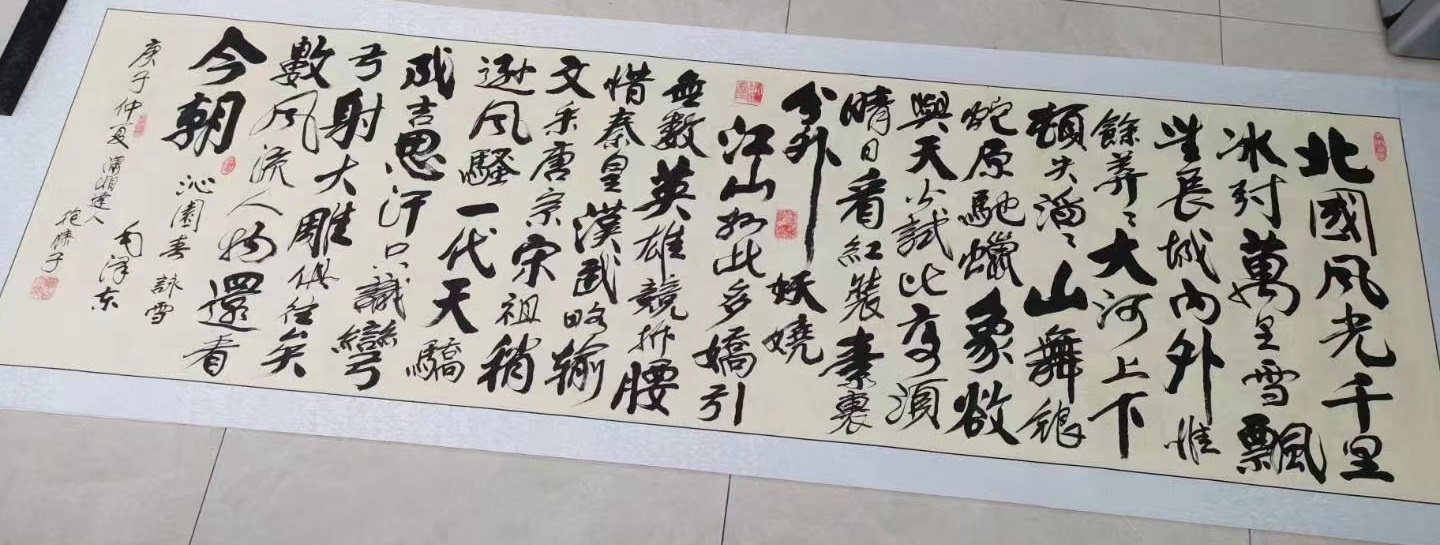 北國風光千里
冰封萬里雪飄
望長城內外惟
餘莽〻大河上下
頓失滔〻山舞銀
蛇原馳蠟象欲
與天公試比高須
晴日看紅裝素裹
分外妖嬈
江山如此多嬌引
無數英雄競折腰
惜秦皇漢武略输
文采唐宗宋祖稍
遜風騷一代天驕
成吉思汗只識彎弓
弓射大雕俱往矣
數風流人物還看
今朝
沁園春詠雪
毛澤东
庚子仲夏瀟湘達人